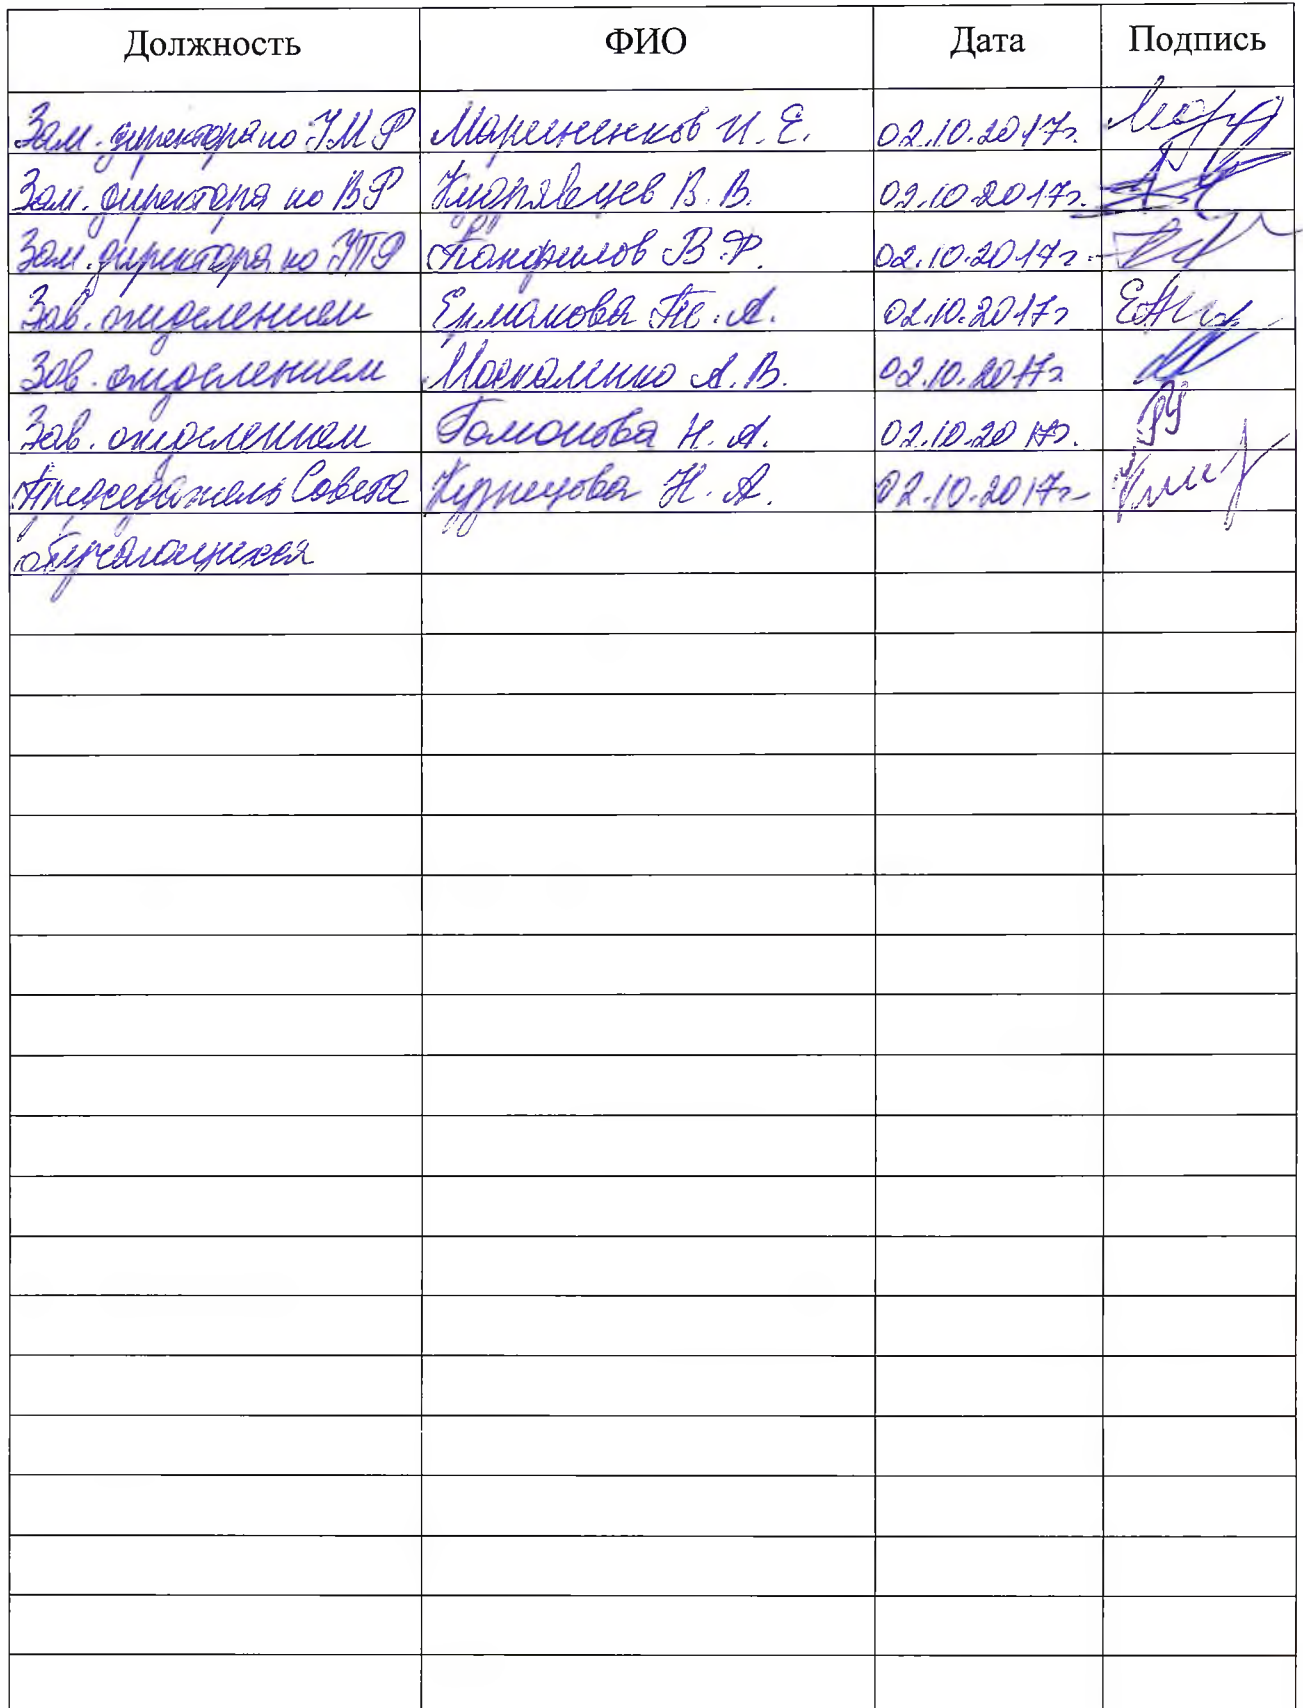 Должность ФИО Дата Подпись
Зам. директора по УМР Мариненков И. Е. 02.10.2017г.
Зам. директора по ВР Кудрявцев В. В. 02.10.2017г.
Зам. директора по УПР Панфилов В. Р. 02.10.2017г.
Зав. отделением Ермакова Т. А. 02.10.2017г
Зав. отделением Москаленко А. В. 02.10.2017г
Зав. отделением Гомонова Н. А. 02.10.2017г.
Председатель Совета Кузнецова Н. А. 02.10.2017г
обучающихся